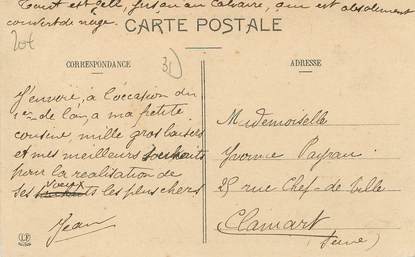 Tout est gelé, jusqu'au Calvaire, qui est absolument
couvert de neige.
CARTE POSTALE
CORRESPONDANCE
ADRESSE
J'envoie, à l'occasion du
1er de l'an, a ma petite
cousine, mille gros baisers
et mes meilleurs souhaits
pour la réalisation de
ses vœux les plus chers
Jean
Mademoiselle
Yvonne Payrau
25 rue Chef-de-Ville
Clamart
(Seine)